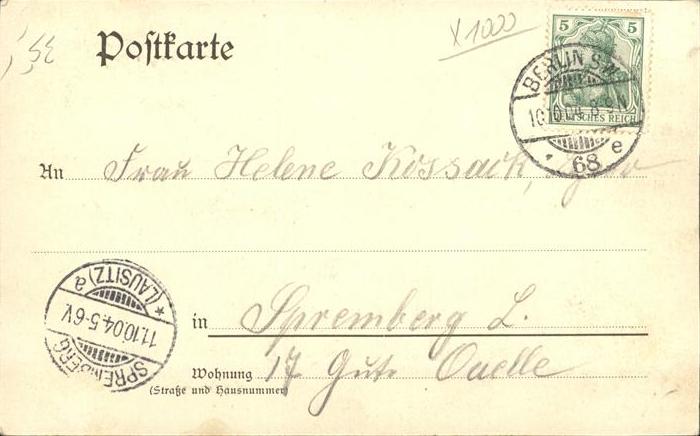 x 1000
Postkarte
5 5
DEUTSCHES REICH
BERLIN S.W.
10.10.04. 8-9N
* 68 e
An Frau Helene Kossack,
SPREMBERG
(LAUSITZ) a
11.10.04. 5-6V.
in Spremberg L.
Wohnung 17 Gute Quelle
(Straße und Hausnummer)